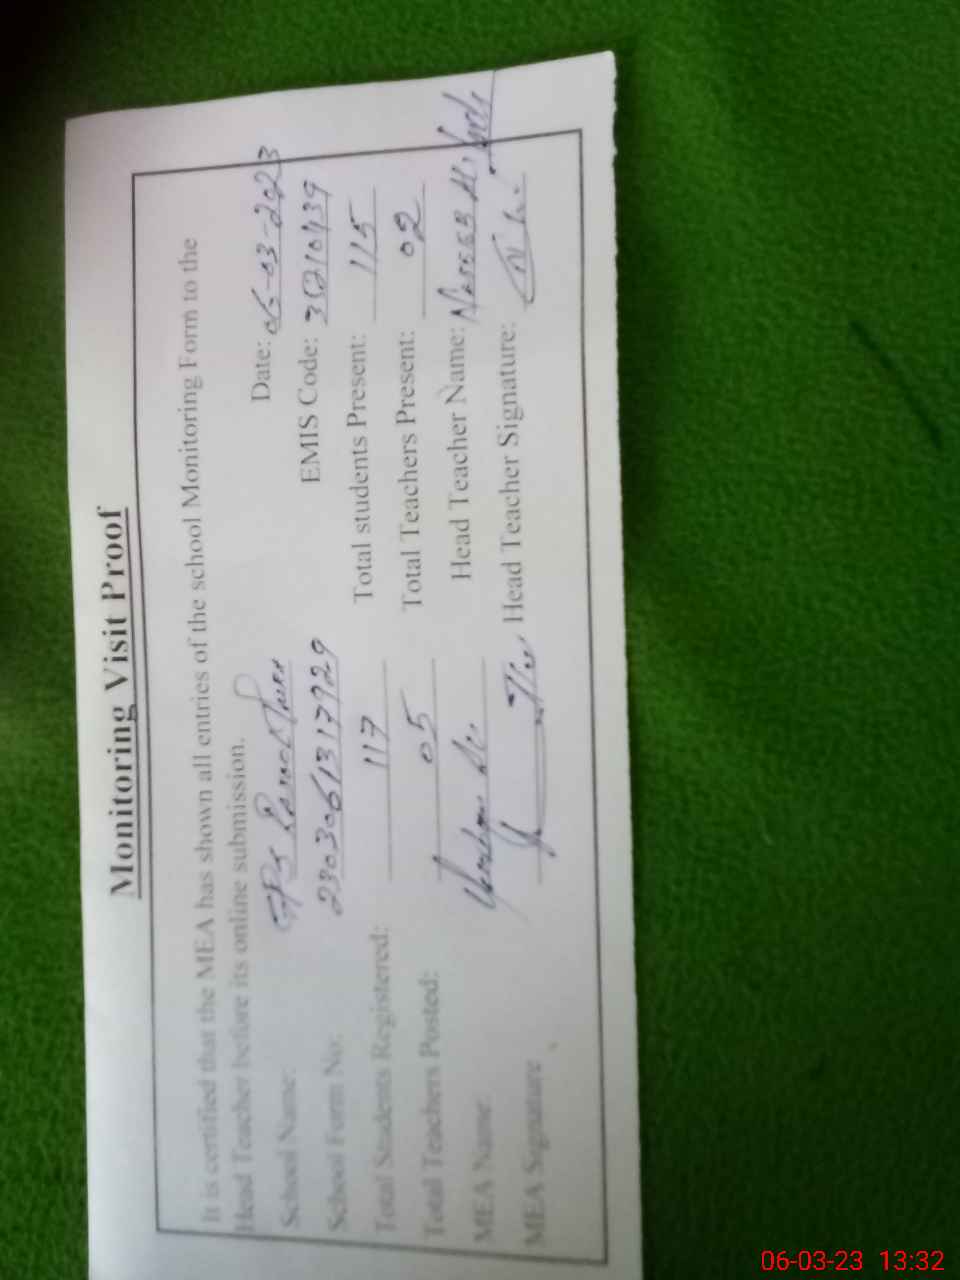 Monitoring Visit Proof
It is certified that the MEA has shown all entries of the school Monitoring Form to the
Head Teacher before its online submission.
School Name: GPS Date: 06-03-2023
School Form No: 2303061317929 EMIS Code:
Total Students Registered: 117 Total students Present: 115
Total Teachers Posted: 05 Total Teachers Present: 02
MEA Name Head Teacher Name:
MEA Signature Head Teacher Signature:
06-03-23 13:32